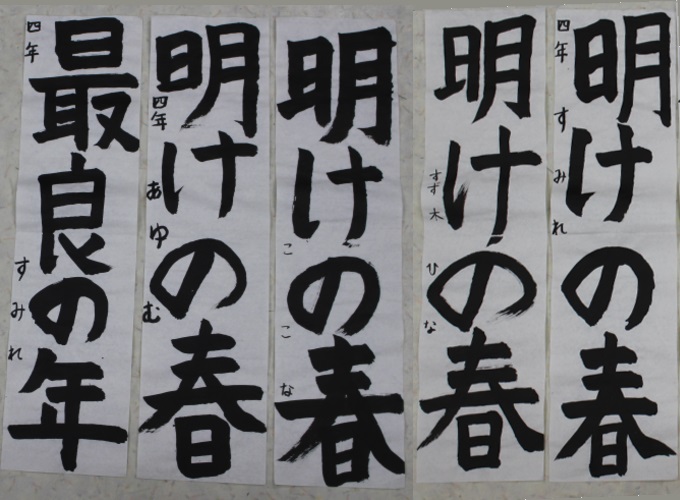 明けの春
四年 すみれ
明けの春
すず木 ひな
明けの春
ここな
明けの春
四年 あゆむ
最良の年
四年 すみれ